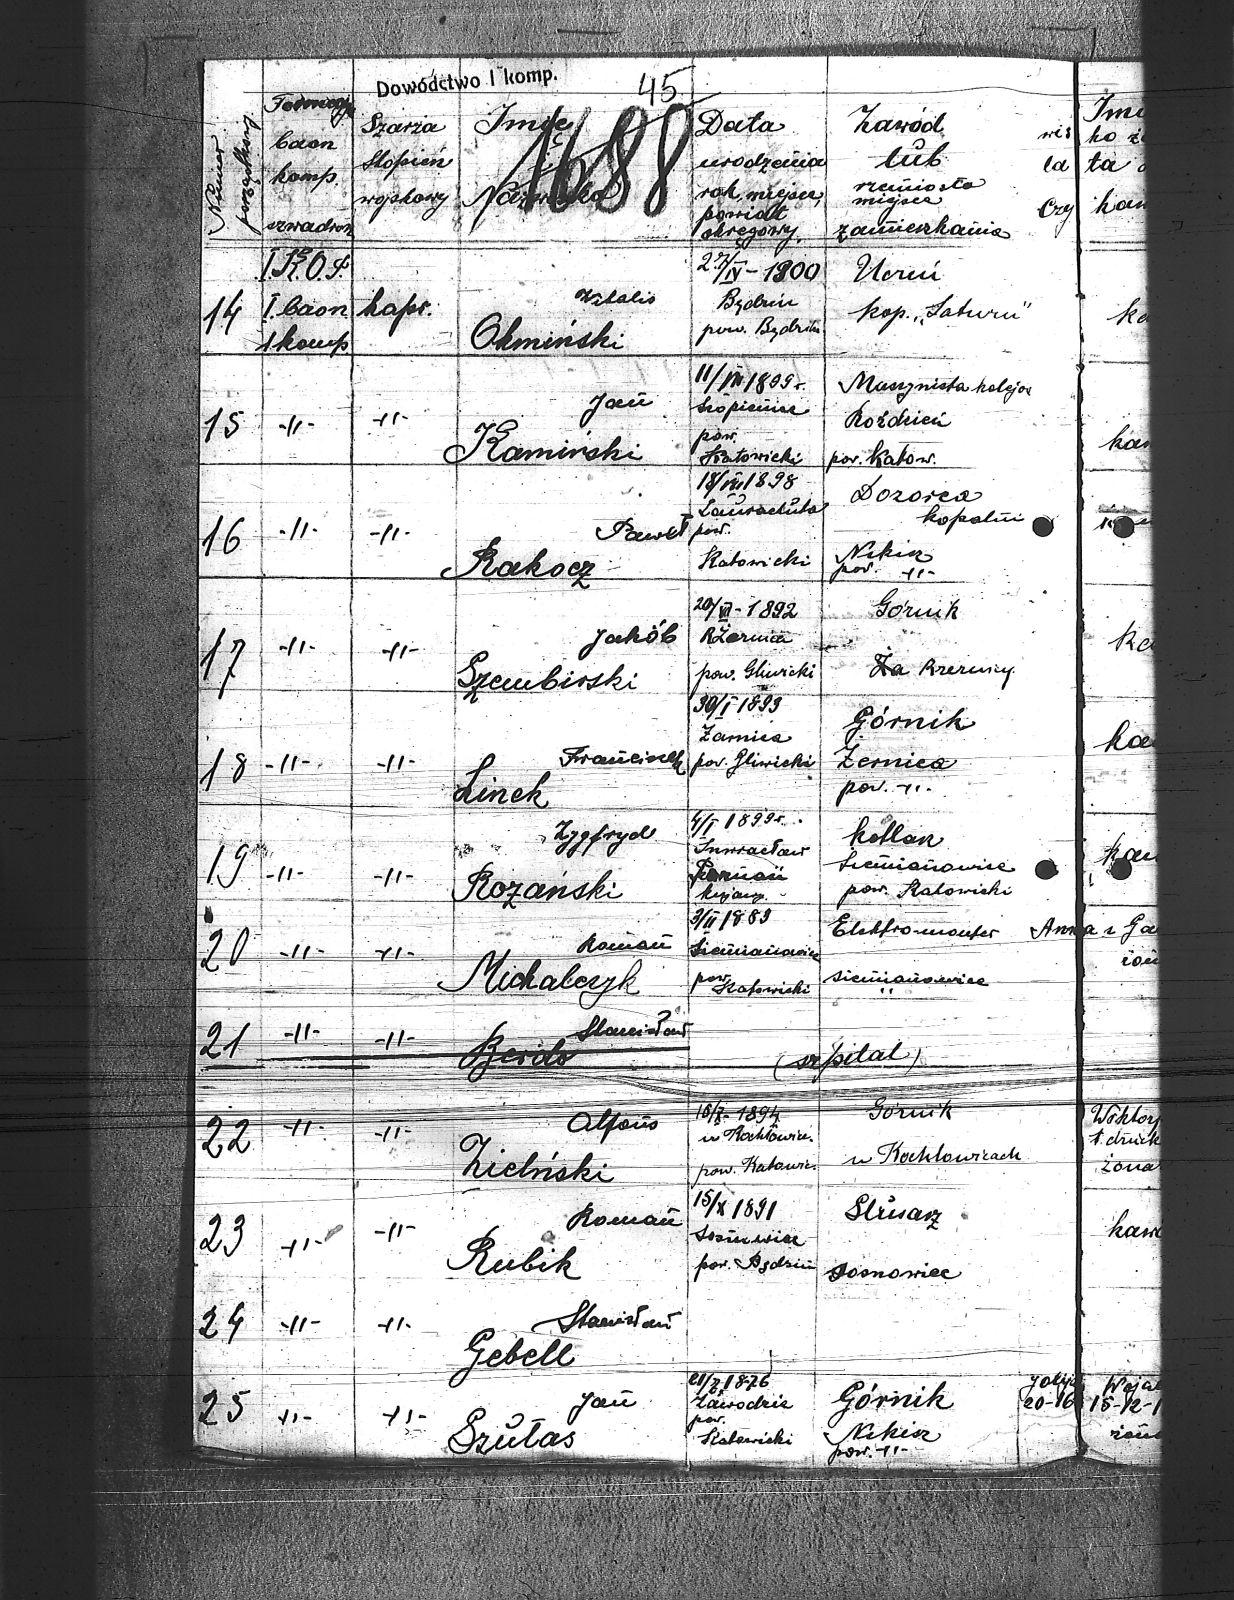 Dowództwo I komp.
45
1688
Numer porządkowy
baon
komp.
szwadron
Szarża
stopień
wojskowy
Imię
i
Nazwisko
Data
urodzenia
rok, miejsce,
powiat
okręgowy
Zawód
lub
rzemiosło
miejsce
zamieszkania
Czy
14
I baon
1 komp
kapr.
Okmiński
27/IV - 1800
Będzin
pow. Będzin
Uczeń
kop. „Saturn"
15
-II-
-II-
Jan
Kamiński
11/VII 1899 r.
Szopienice
pow.
Katowicki
Maszynista kolejo
Roździeń
pow. Katow.
16
-II-
-II-
Paweł
Rakocz
18/VII 1898
Laurachuta
pow.
Katowicki
Dozorca
kopalni
Nikisz
pow. -II-
17
-II-
-II-
Jakób
Szembirski
20/VII - 1892
pow. Gliwicki
Górnik
18
-II-
-II-
Franciszek
Linek
30/I 1893
Żarnica
pow. Gliwicki
Górnik
Żernica
pow. -II-
19
-II-
-II-
Zygfryd
Rozański
4/I 1899 r.
Inwracław
Poznań
kotlarz
Siemianowice
pow. Katowicki
20
-II-
-II-
Roman
Michalczyk
3/II 1889
Siemianowice
pow.
Katowicki
Elektromonter
Siemianowice
Anna z Ga
żon
21
-II-
-II-
Stanisław
(szpital)
22
-II-
-II-
Alfons
Zielński
16/X - 1894
w Kochłowic.
pow. Katowic.
Górnik
w Kochłowicach
Wiktory
żona
23
-II-
-II-
Roman
Rubik
15/X 1891
Sosnowice
pow. Będzin
Ślusarz
Sosnowiec
kaw
24
-II-
-II-
Stanisław
Gebell
25
-II-
-II-
Jan
Szułas
21/X 1876
Zawodzie
pow.
Katowicki
Górnik
Nikisz
pow. -II-
20-16
15-12-1
żon